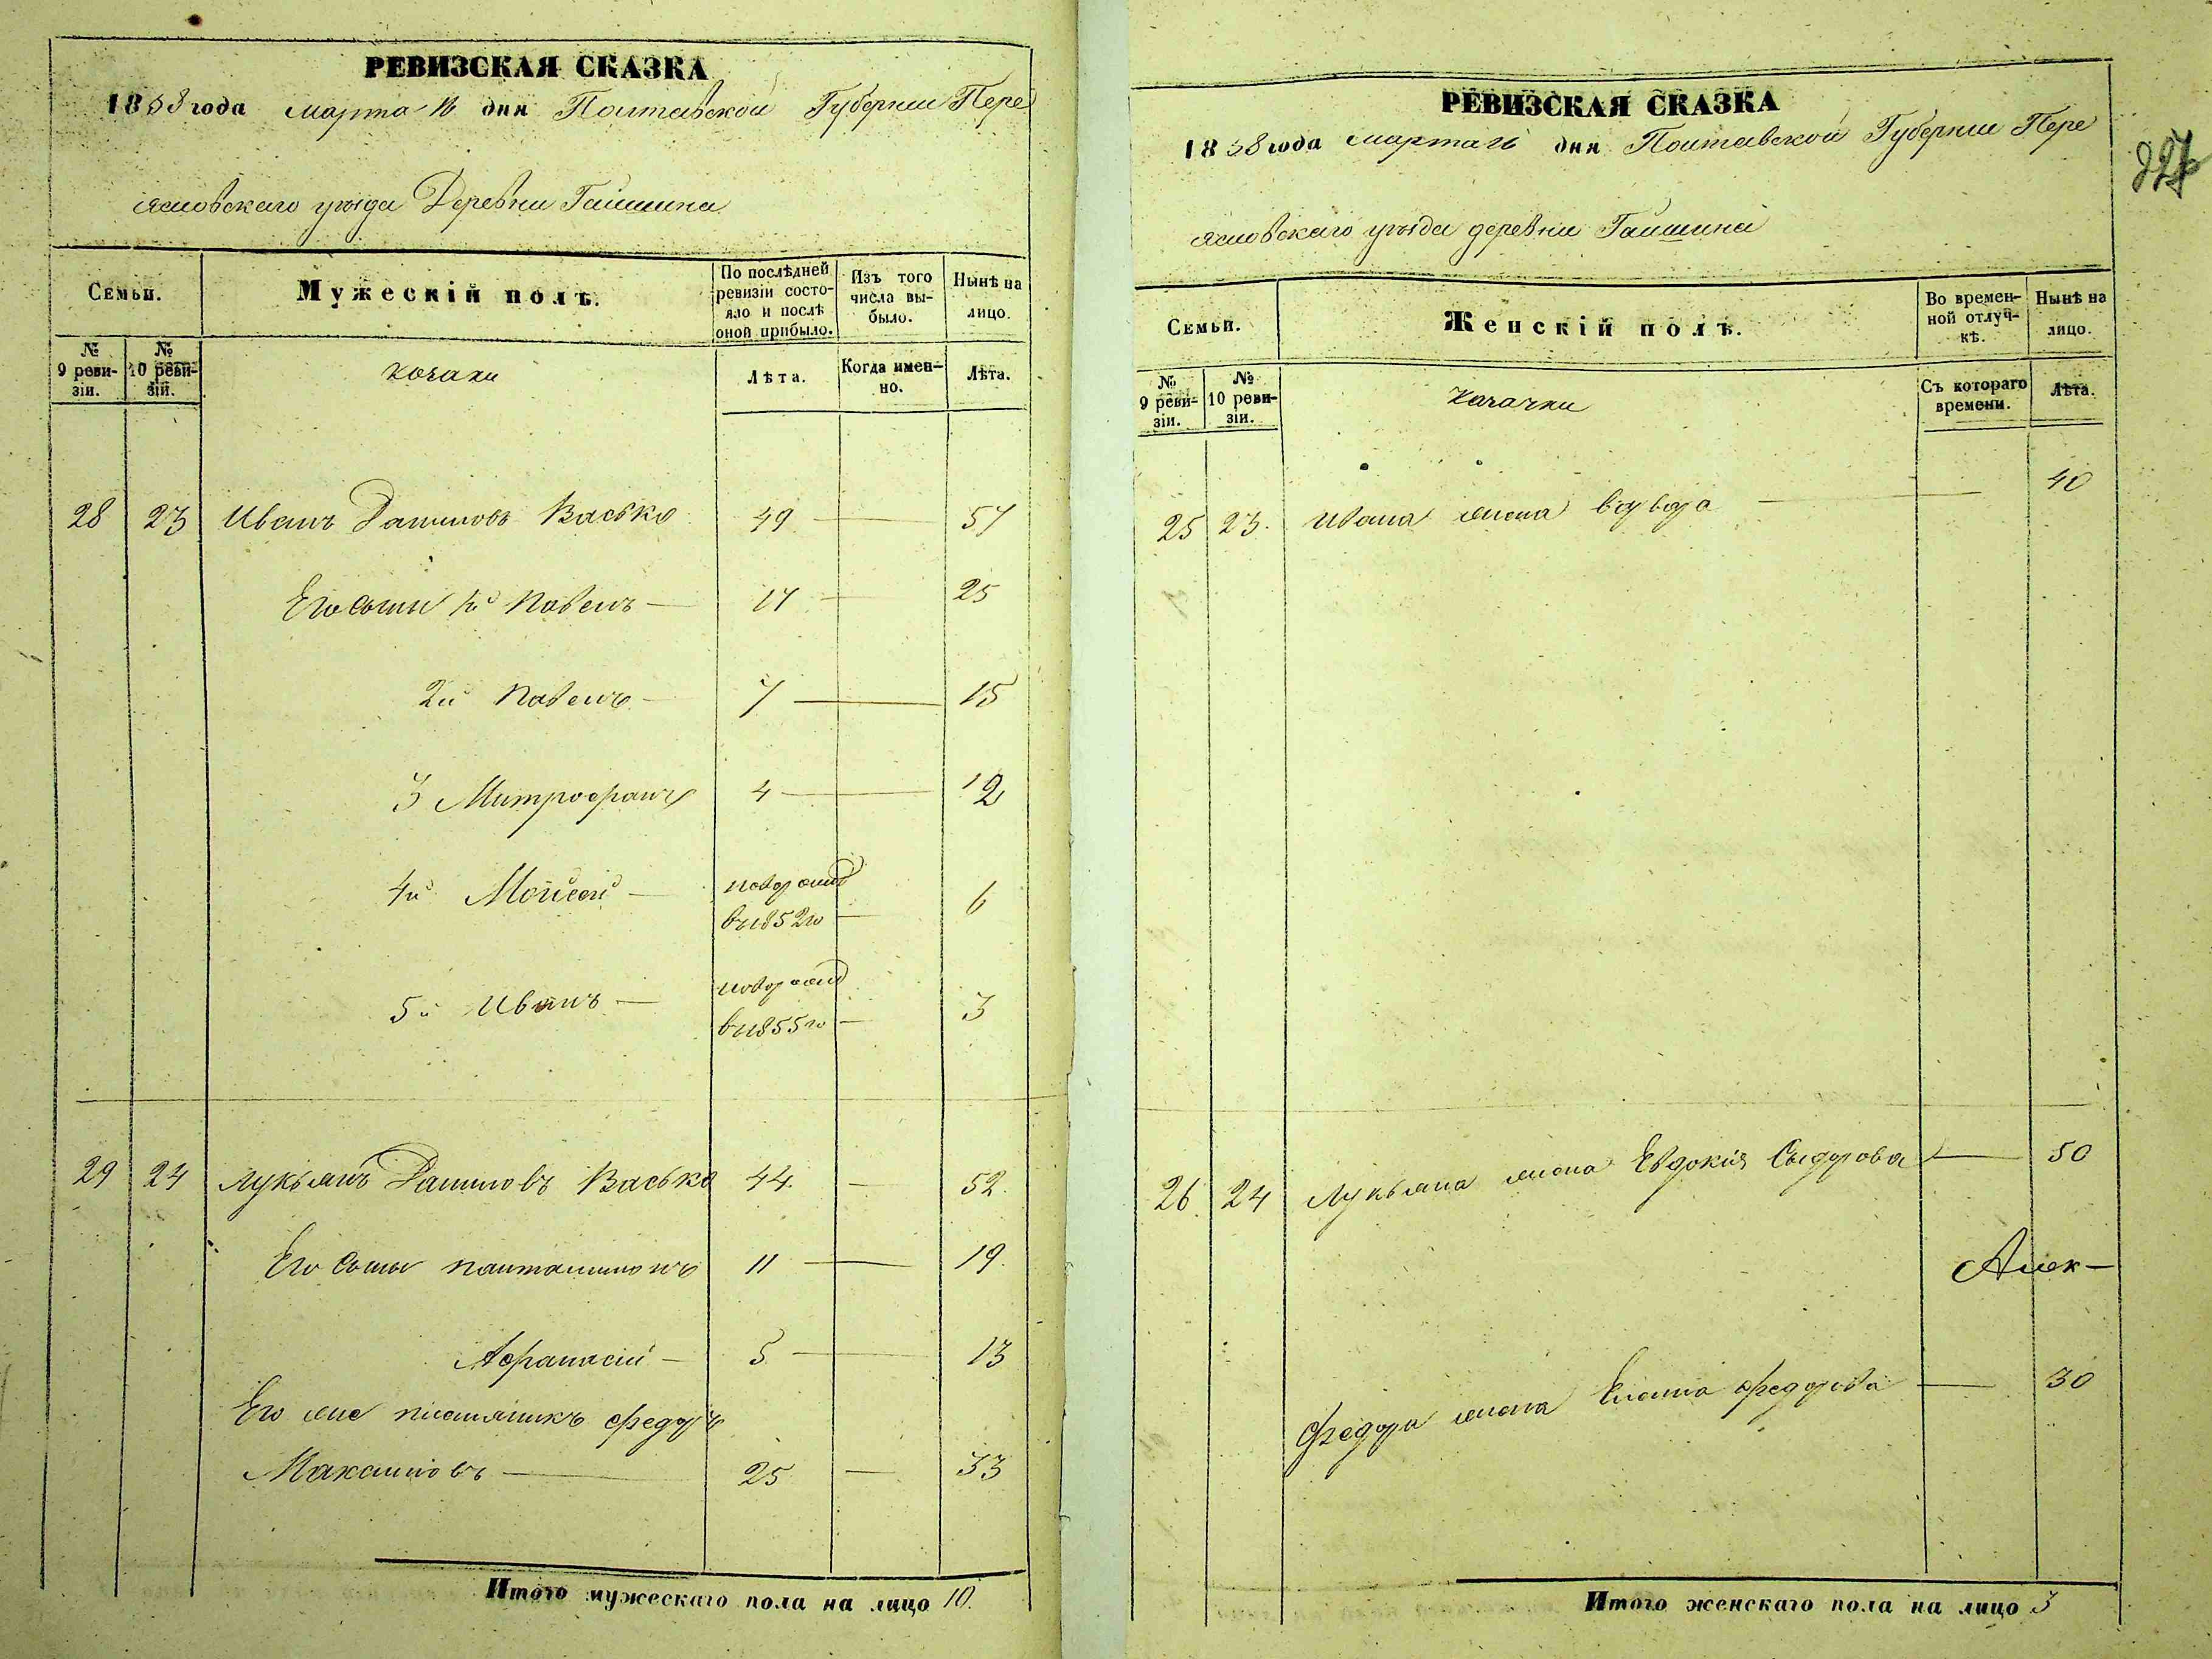 РЕВИЗСКАЯ СКАЗКА
1858 года марта 16 дня Полтавской Губернии Пере
яславскаго уѣзда Деревни Гайшина
Семьи.
Мужескій полъ.
По послѣдней ревизіи состо-
яло и послѣ оной прибыло.
Изъ того числа вы-
было.
Нынѣ на лицо.
№ 9 реви-
зіи.
№ 10 реви-
зіи.
козаки
Лѣта.
Когда имен-
но.
Лѣта.
28 23 Иванъ Даниловъ Васько 49 — 57
Его сыны 1й Павелъ — 17 — 25
2й Павелъ — 7 — 15
3 Митрофанъ 4 — 12
4й Мойсей — новорожд
въ 1852го — 6
5й Иванъ — новорожд
въ 1855го — 3
29 24 Лукьянъ Даниловъ Васько 44. — 52.
Его сыны Панталимонъ 11 — 19.
Афранасій — 5 — 13
Его же племяникъ Федоръ
Макаимовъ — 25 — 33
Итого мужескаго пола на лицо 10.
РЕВИЗСКАЯ СКАЗКА
1858 года марта 16 дня Полтавской Губернии Пере
яславскаго уѣзда деревни Гайшина
Семьи.
Женскій полъ.
Во времен-
ной отлуч-
кѣ.
Нынѣ на лицо.
№ 9 реви-
зіи.
№ 10 реви-
зіи.
козачки
Съ котораго времени.
Лѣта.
25 23. Ивана жена Варвара — 40
26 24 Лукьяна жена Евдокия Сидорова — 50
Алек—
Федора жена Елена Федорова — 30
Итого женскаго пола на лицо 3